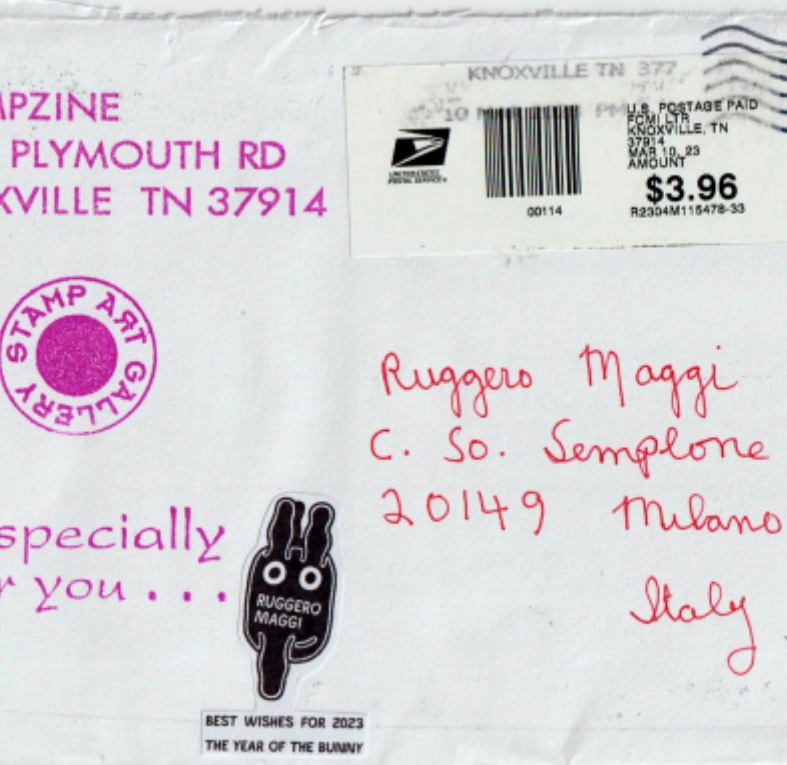 MPZINE
PLYMOUTH RD
XVILLE TN 37914
KNOXVILLE TN 377
10 PM
UNITED STATES
POSTAL SERVICE
00114
U.S. POSTAGE PAID
FCMI LTR
KNOXVILLE, TN
37914
MAR 10, 23
AMOUNT
$3.96
R2304M115478-33
STAMP ART GALLERY
Ruggero Maggi
C. So. Semplone
20149 Milano
Italy
specially
r you . . .
RUGGERO
MAGGI
BEST WISHES FOR 2023
THE YEAR OF THE BUNNY